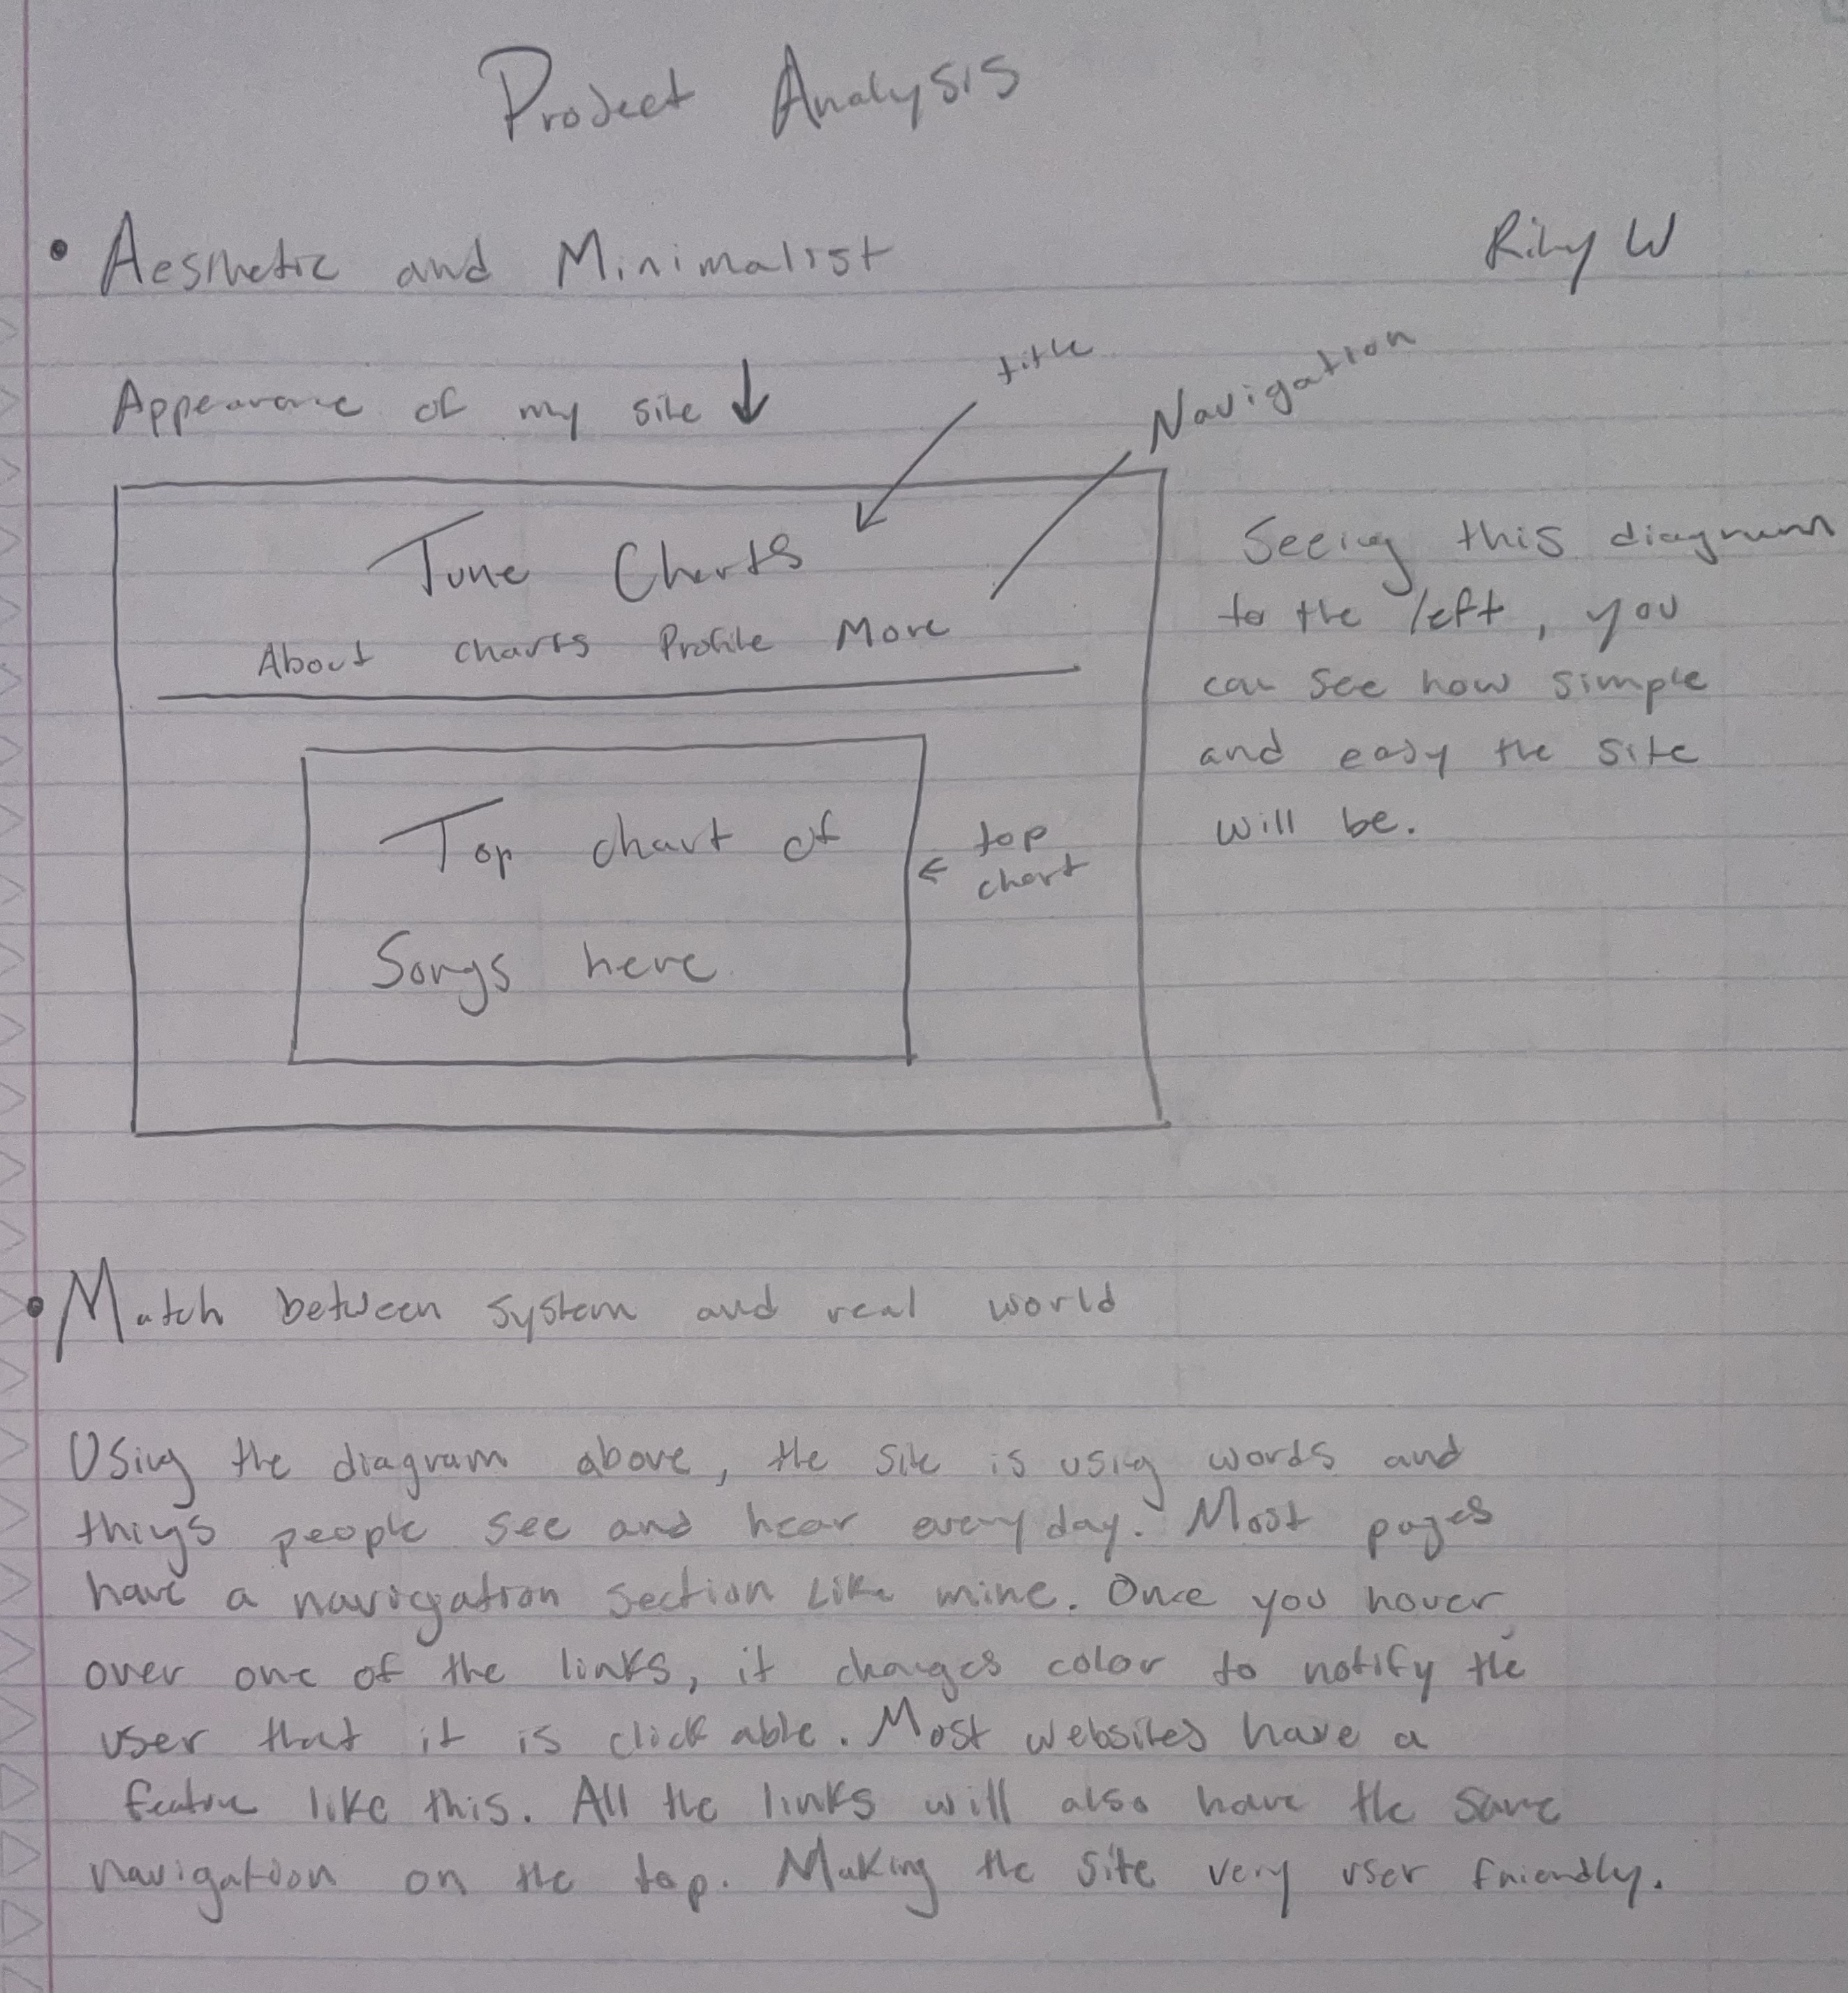 Project Analysis
• Aesthetic and Minimalist
Riley W
Appearance of my site ↓
title
Navigation
Tune Charts
About charts Profile More
Top chart of
Songs here
← top
chart
Seeing this diagram
to the left, you
can see how simple
and easy the site
will be.
• Match between system and real world
Using the diagram above, the site is using words and
things people see and hear everyday. Most pages
have a navigation section like mine. Once you hover
over one of the links, it changes color to notify the
user that it is click able. Most websites have a
feature like this. All the links will also have the same
navigation on the top. Making the site very user friendly.